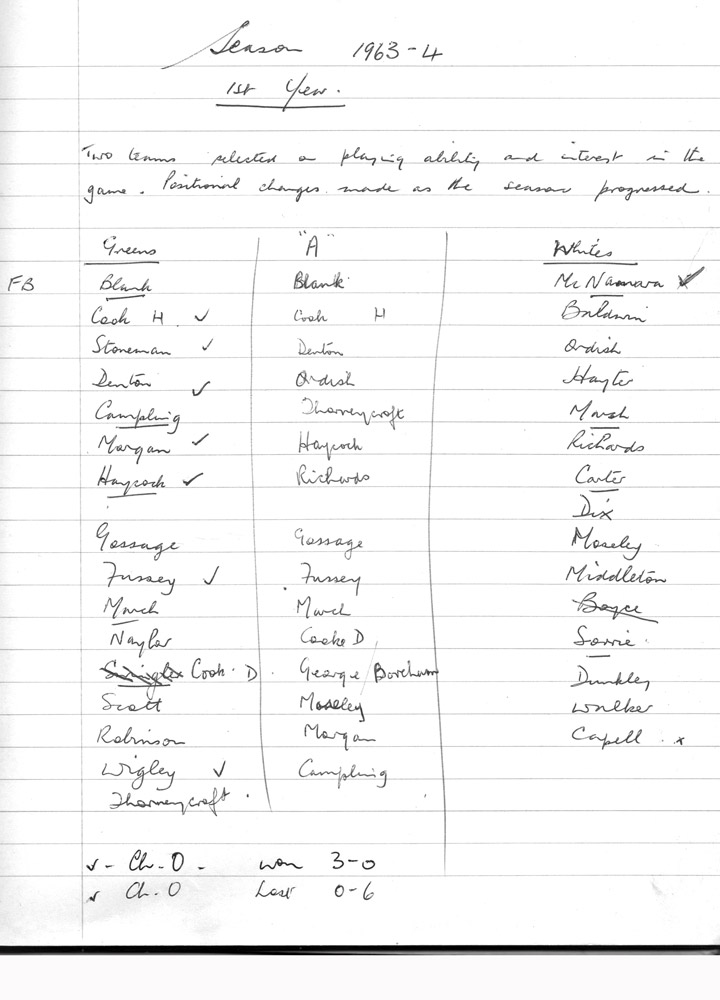 Season 1963-4
1st Year.
Two teams selected on playing ability and interest in the
game. Positional changes made as the season progressed.
Greens "A" Whites
FB Blank Blank Mc Namara ✓
Cook H. ✓ Cook H Baldwin
Stoneman ✓ Denton Ordish
Denton ✓ Ordish Hayter
Campling Thorneycroft Marsh
Morgan ✓ Haycock Richards
Haycock ✓ Richards Carter
Dix
Gossage Gossage Moseley
Fussey ✓ Fussey Middleton
March March Boyce
Naylor Cooke D Sorrie.
Cook. D. George / Boreham Dunkley
Scott Moseley Walker
Robinson Morgan Capell x
Wigley ✓ Campling
Thorneycroft.
✓ - Ch. O - won 3-0
✓ Ch. O Lost 0-6